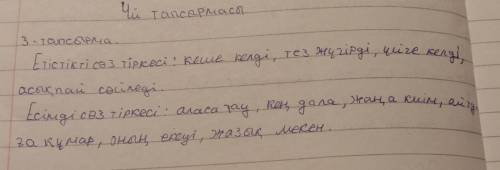 Үй тапсырмасы
3-тапсырма.
Етістікті сөз тіркесі: кеше келді, тез жүгірді, үйге келді,
асықпай сөйледі.
Есімді сөз тіркесі: аласа тау, кең дала, жаңа киім, айтуға құмар, оның екеуі, жазық мекен.